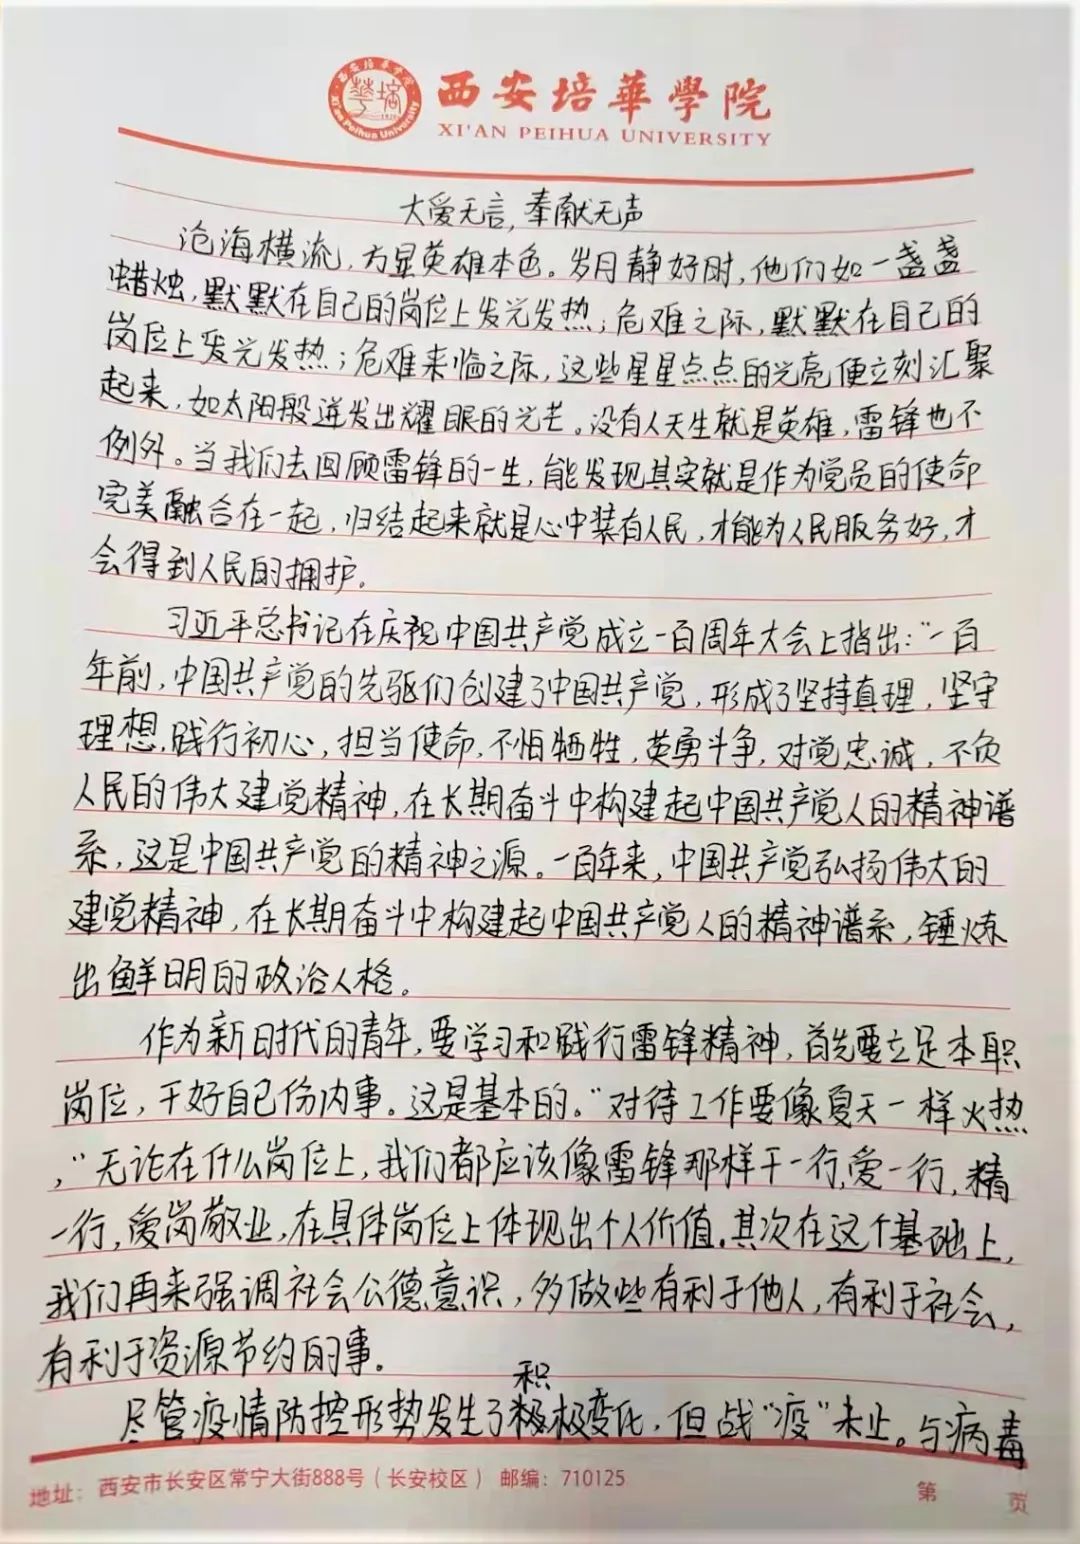 西安培華學院
XI'AN PEIHUA UNIVERSITY
大爱无言,奉献无声
沧海横流,方显英雄本色。岁月静好时,他们如一盏盏
蜡烛,默默在自己的岗位上发光发热;危难之际,默默在自己的
岗位上发光发热;危难来临之际,这些星星点点的光亮便立刻汇聚
起来,如太阳般迸发出耀眼的光芒。没有人天生就是英雄,雷锋也不
例外。当我们去回顾雷锋的一生,能发现其实就是作为党员的使命
完美融合在一起,归结起来就是心中装有人民,才能为人民服务好,才
会得到人民的拥护。
习近平总书记在庆祝中国共产党成立一百周年大会上指出:“一百
年前,中国共产党的先驱们创建了中国共产党,形成了坚持真理,坚守
理想,践行初心,担当使命,不怕牺牲,英勇斗争,对党忠诚,不负
人民的伟大建党精神,在长期奋斗中构建起中国共产党人的精神谱
系,这是中国共产党的精神之源。一百年来,中国共产党弘扬伟大的
建党精神,在长期奋斗中构建起中国共产党人的精神谱系,锤炼
出鲜明的政治人格。
作为新时代的青年,要学习和践行雷锋精神,首先要立足本职
岗位,干好自己份内事。这是基本的。“对待工作要像夏天一样火热
,”无论在什么岗位上,我们都应该像雷锋那样干一行,爱一行,精
一行,爱岗敬业,在具体岗位上体现出个人价值。其次在这个基础上,
我们再来强调社会公德意识,多做些有利于他人,有利于社会,
有利于资源节约的事。
积
尽管疫情防控形势发生了极极变化,但战“疫”未止。与病毒
地址:西安市长安区常宁大街888号(长安校区) 邮编:710125
第 页